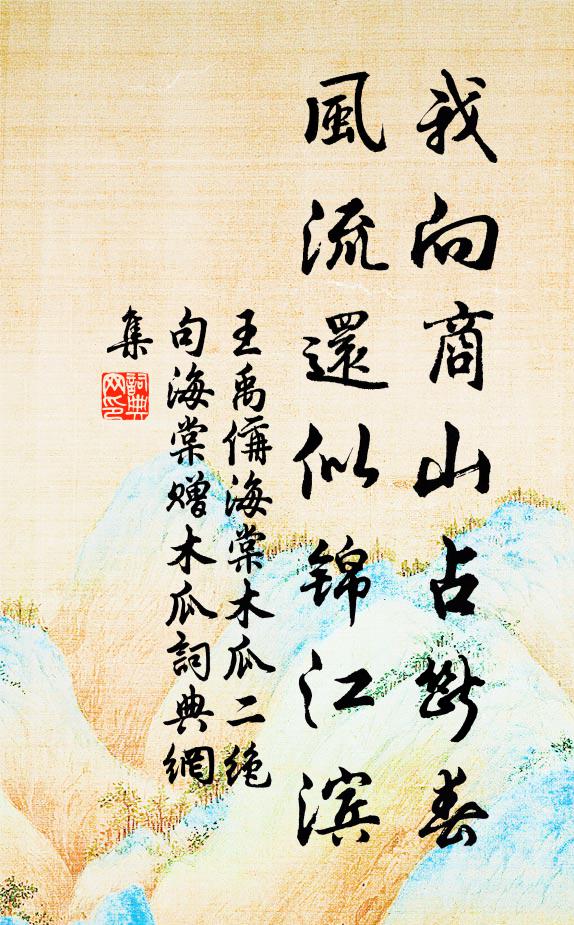 我向商山占断春
風流還似锦江滨
王禹偁海棠木瓜二绝
句海棠赠木瓜詞典網
集
詞典网印